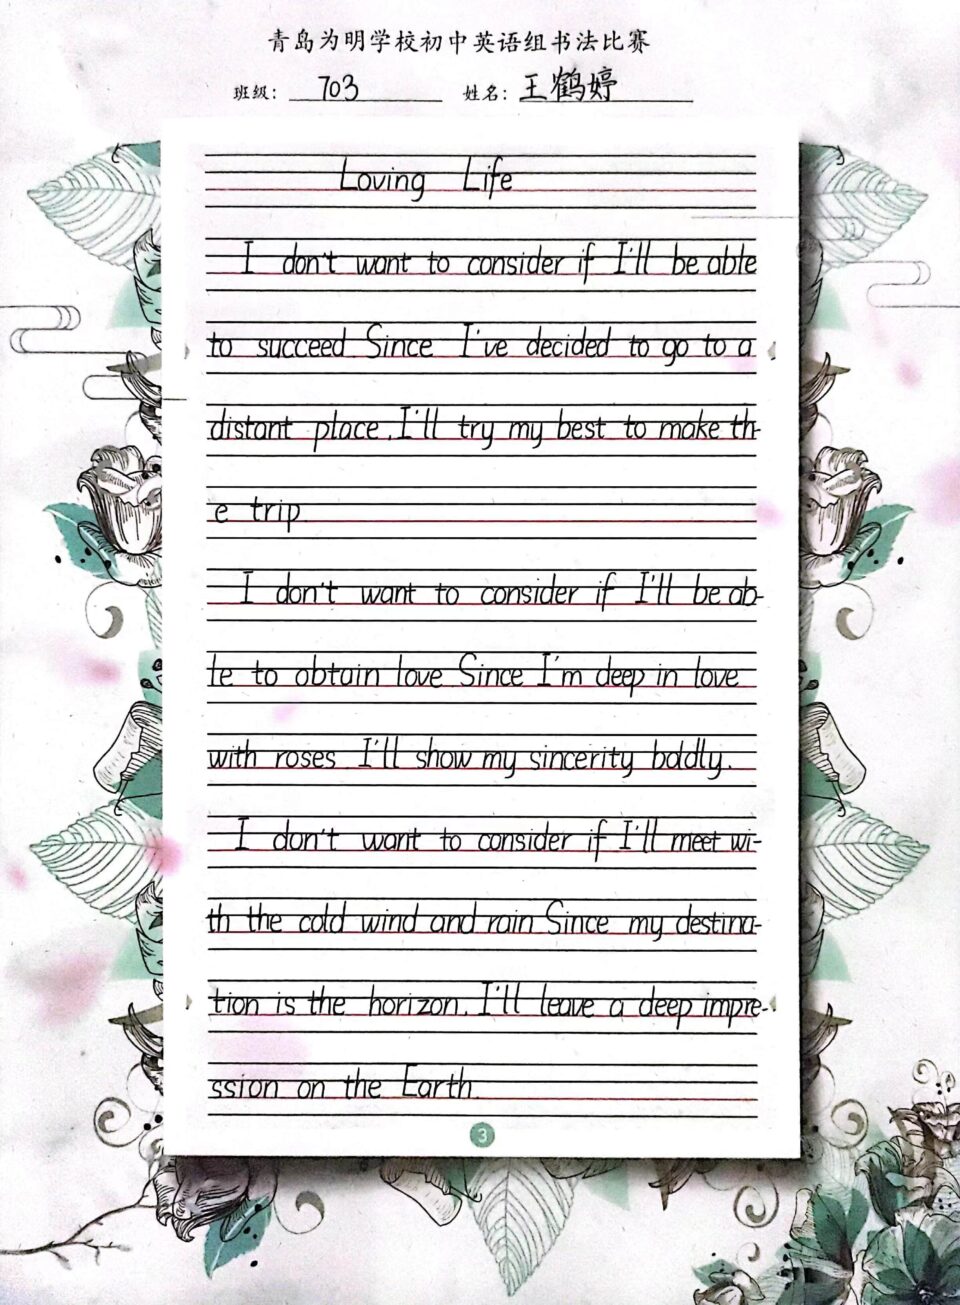 青岛为明学校初中英语组书法比赛
班级: 703 姓名: 王鹤婷
Loving Life
I don't want to consider if I'll be able
to succeed. Since I've decided to go to a
distant place, I'll try my best to make th-
e trip.
I don't want to consider if I'll be ab-
le to obtain love. Since I'm deep in love
with roses. I'll show my sincerity boldly.
I don't want to consider if I'll meet wi-
th the cold wind and rain. Since my destina-
tion is the horizon. I'll leave a deep impre-
ssion on the Earth.
3